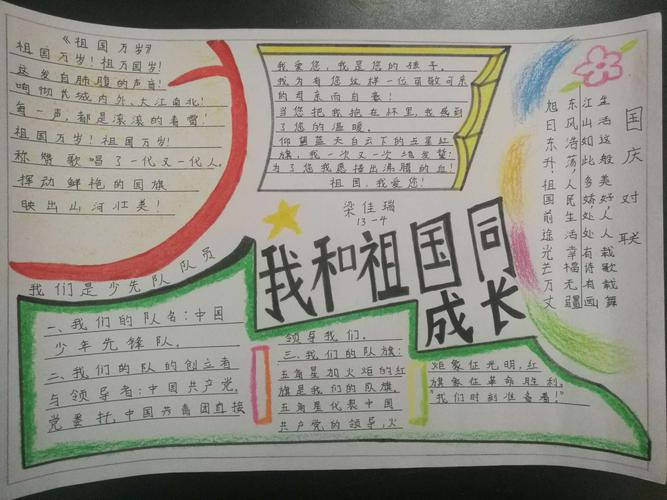 《祖国万岁》
祖国万岁！祖万国岁！
这发自肺腹的声音！
响彻长城内外、大江南北！
每一声，都是滚滚的春雷！
祖国万岁！祖国万岁！
称赞歌唱了一代又一代人。
挥动鲜艳的国旗
映出山河壮美！
我爱您，我是您的孩子。
我为有您这样一位可敬可亲
的母亲而自豪！
当您把我抱在怀里，我感到
了您的温暖。
仰望蓝天白云下的五星红
旗，我一次又一次地发誓：
为了您我愿撸出沸腾的血！
祖国，我爱您！
梁佳瑞
13-4
国庆对联
生活这般美好，人人载歌载舞
江山如此多娇，处处有诗有画
东风浩荡，人民生活幸福无疆
旭日东升，祖国前途光芒万丈
我和祖国同
成长
我们是少先队队员
一、我们的队名：中国
少年先锋队。
二、我们的队的创立者
与领导者：中国共产党，
党委托，中国共青团直接
领导我们。
三、我们的队旗：
五角星加火炬的红
旗是我们的队旗。
五角星代表中国
共产党的领导，火
炬象征光明，红
旗象征革命胜利。
"我们时刻准备着！"